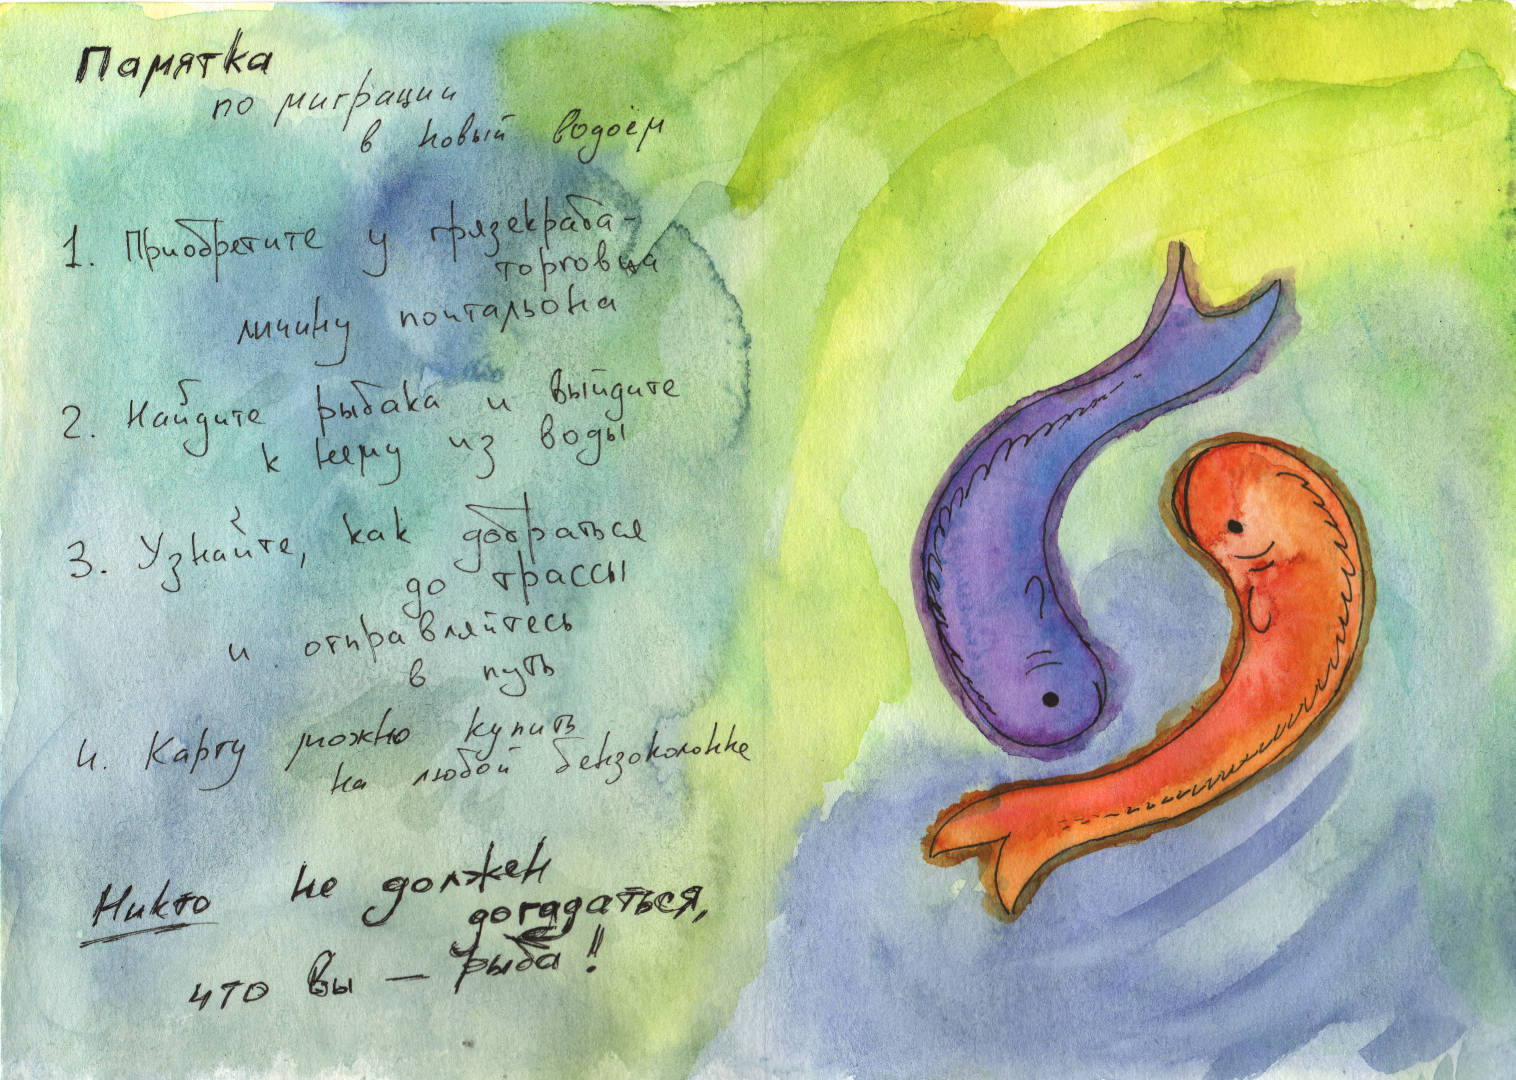 Памятка
по миграции
в новый водоём
1. Приобретите у грязекраба-
торговца
личину почтальона
2. Найдите рыбака и выйдите
к нему из воды
3. Узнайте, как добраться
до трассы
и отправляйтесь
в путь
4. Карту можно купить
на любой бензоколонке
Никто не должен
догадаться,
что вы — рыба!